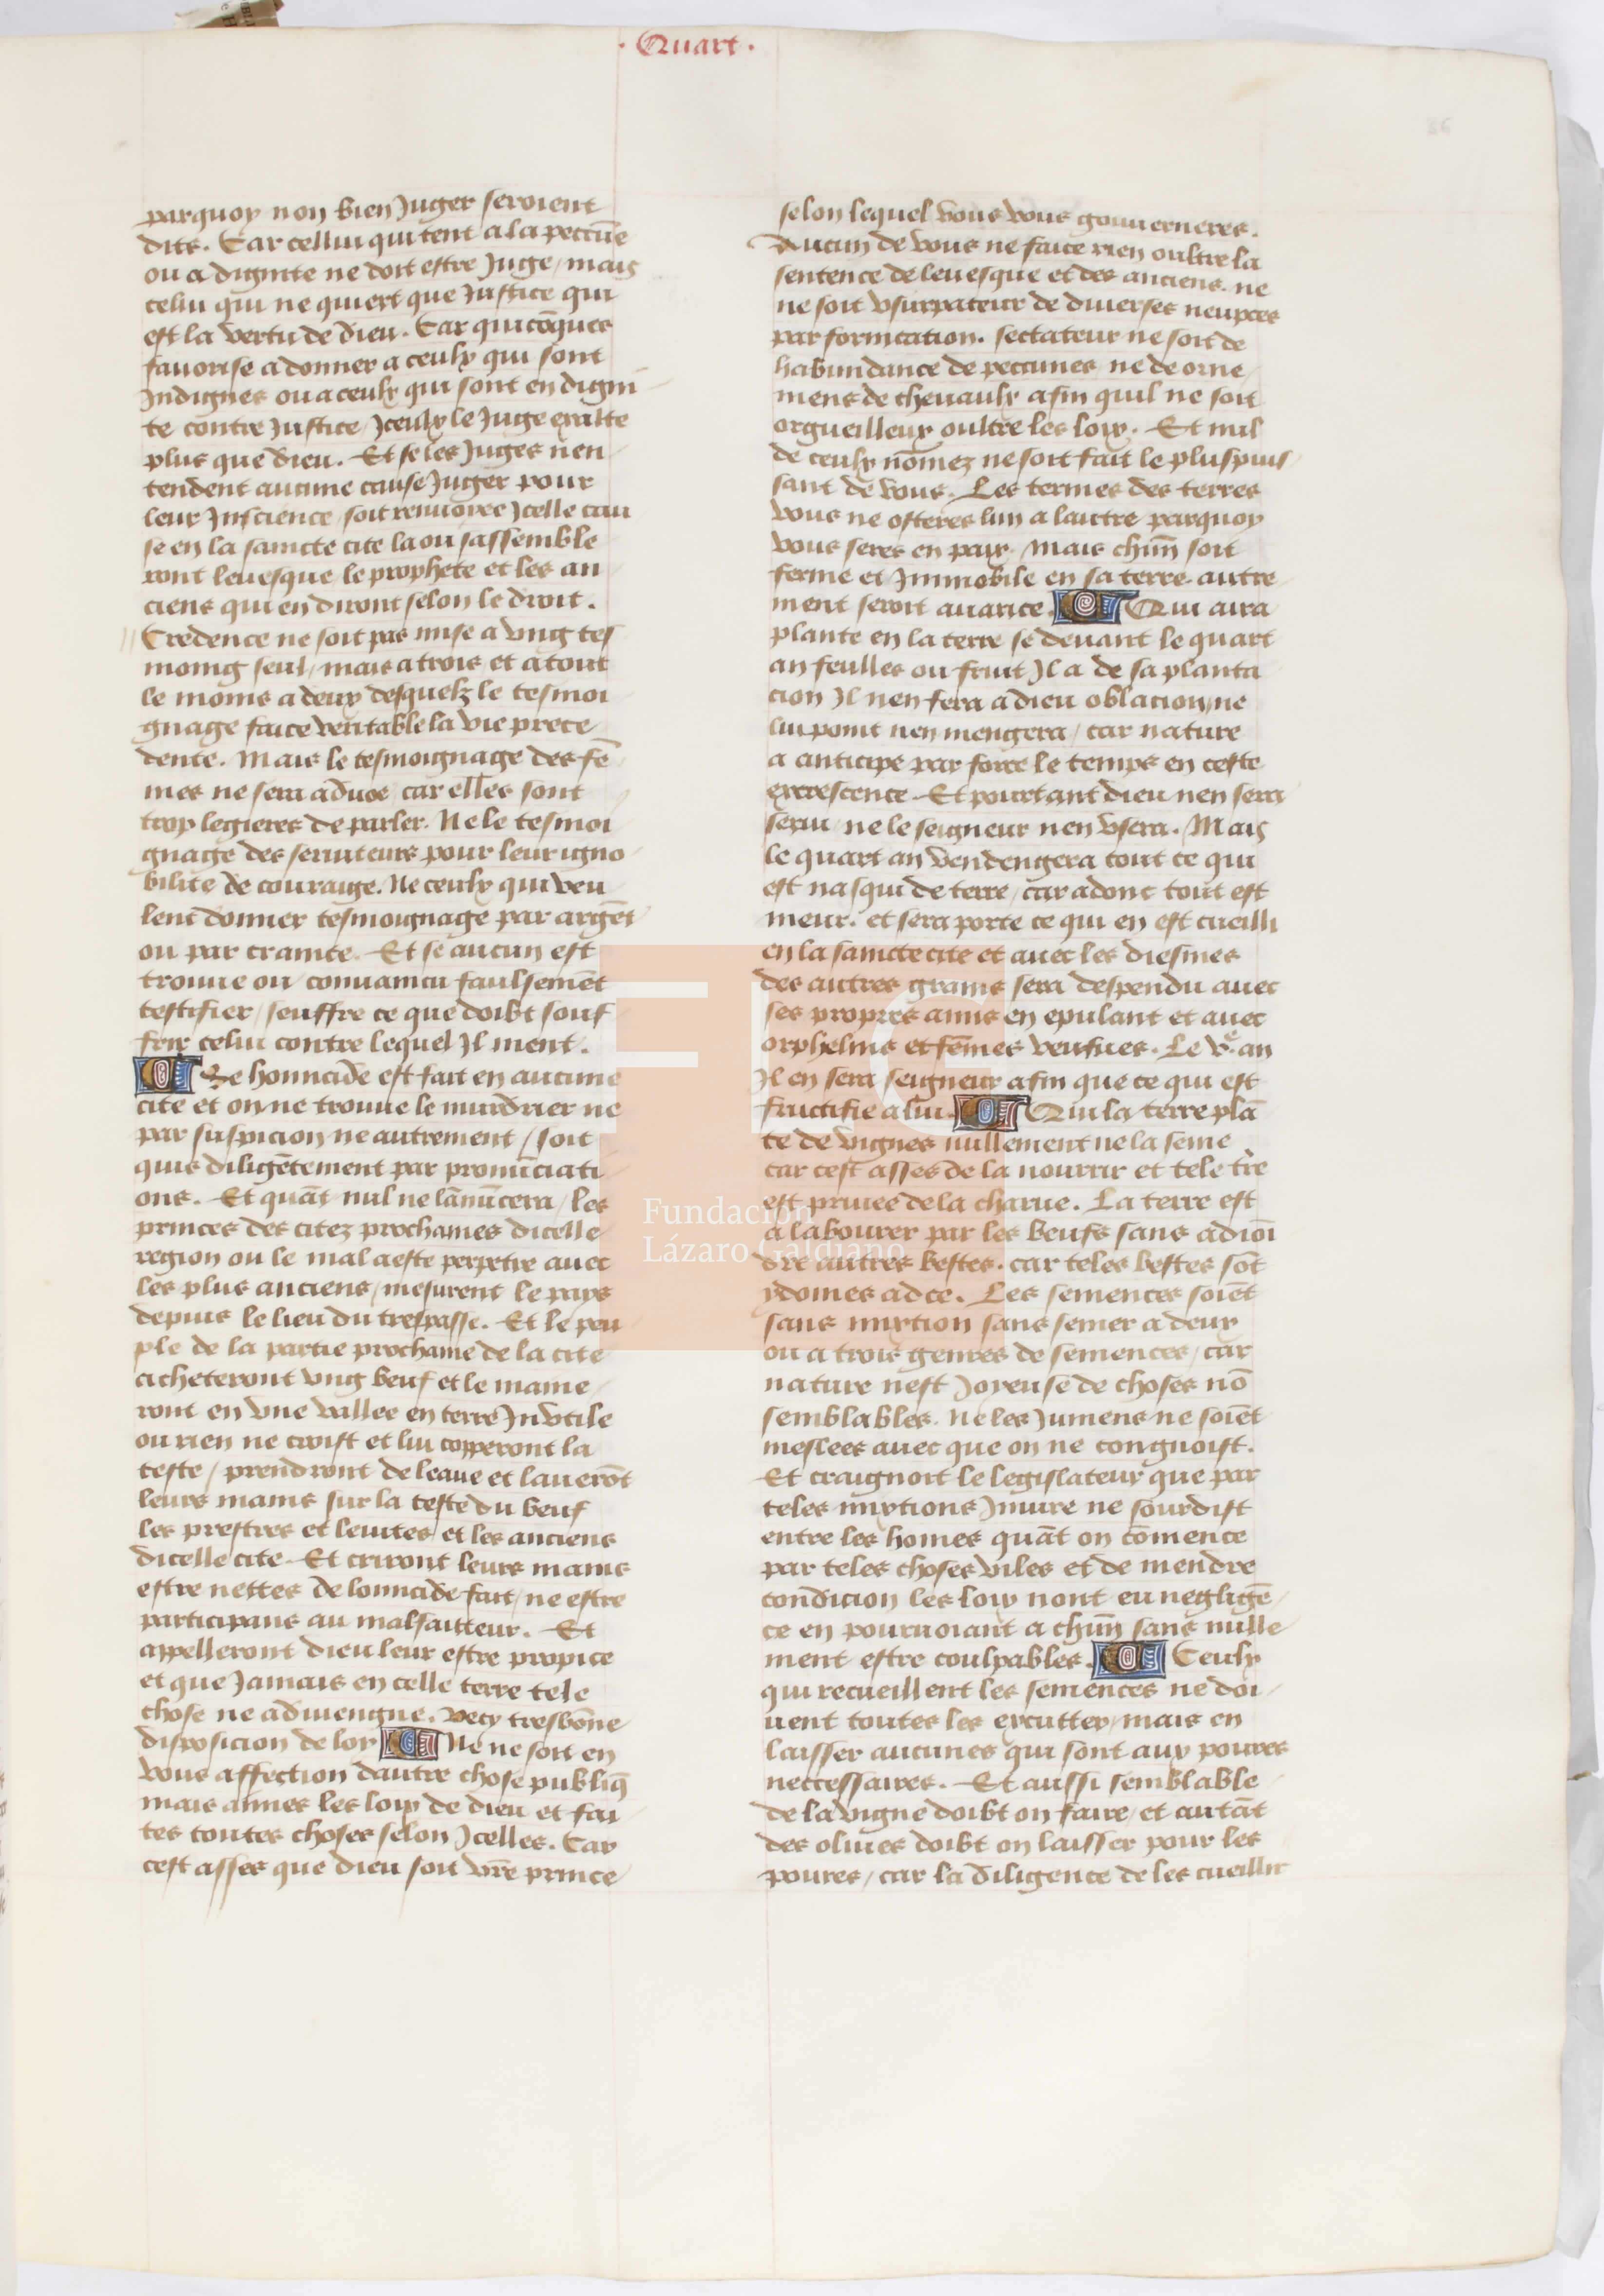 . Quart .
86
parquoy non bien Juger seroient
dits. Car cellui qui tent a la peccūe
ou a dignite ne doit estre Juge / mais
celui qui ne quiert que Justice qui
est la vertu de dieu. Car quicōques
fauorise a donner a ceulx qui sont
Indignes ou a ceulx qui sont en digni
te contre Justice / Jceulx le Juge exalte
plus que dieu. Et se les Juges nen
tendent aucune cause Juger pour
leur Inscience / soit renuoyee Jcelle cau
se en la saincte cite la ou sassemble
ront leuesque le prophete et les an
ciens qui en diront selon le droit.
Credence ne soit pas mise a vng tes
moing seul / mais a trois et a tout
le moins a deux desquelz le tesmoi
gnage face veritable la vie prece
dente. Mais le tesmoignage des fē
mes ne sera aduoe / car elles sont
trop legieres de parler. Ne le tesmoi
gnage des seruiteurs pour leur igno
bilite de couraige. Ne ceulx qui veu
lent donner tesmoignage par argēt
ou par crainte. Et se aucun est
trouue ou conuaincu faulsemēt
testifier / seuffre ce que doibt souf
frir celui contre lequel Jl ment.
Se homicide est fait en aucune
cite et on ne trouue le murdrier ne
par suspicion ne autrement / soit
quis diligētement par pronūciati
ons. Et quāt nul ne lānūcera / les
princes des citez prochaines dicelle
region ou le mal a este perpetre auec
les plus anciens / mesurent le pays
depuis le lieu du trespasse. Et le peu
ple de la partie prochaine de la cite
acheteront vng beuf et le maine
ront en vne vallee en terre Jnvtile
ou rien ne croist et lui copperont la
teste / prendront de leaue et lauerōt
leurs mains sur la teste du beuf
les prestres et leuites et les anciens
dicelle cite. Et criront leurs mains
estre nettes de lomicide fait / ne estre
participans au malfaitteur. Et
appelleront dieu leur estre propice
et que Jamais en celle terre tele
chose ne aduiengne. Vecy tresbōne
disposicion de loy Ne ne soit en
vous affection dautre chose publiq̄
mais aimes les loix de dieu et fai
tes toutes choses selon Jcelles. Car
cest asses que dieu soit vr̄e prince
selon lequel vous vous gouuerneres.
Aucun de vous ne face rien oultre la
sentence de leuesque et des anciens. ne
ne soit vsurpateur de diuerses neupces
par fornication. sectateur ne soit de
habundance de peccunes ne de orne
mens de cheuaulx afin quil ne soit
orgueilleux oultre les loix. Et nul
de ceulx nōmez ne soit fait le plus puis
sant de vous. Les termes des terres
vous ne osteres lun a lautre parquoy
vous seres en paix. Mais chūn soit
ferme et Jmmobile en sa terre. autre
ment seroit auarice. Qui aura
plante en la terre se deuant le quart
an feulles ou fruit Jl a de sa planta
cion Jl nen fera a dieu oblacion / ne
lui point nen mengera / car nature
a anticipe par force le temps en ceste
excrescence. Et pourtant dieu nen sera
serui / ne le seigneur nen vsera. Mais
le quart an vendengera tout ce qui
est nasqui de terre / car adonc tout est
meur. et sera porte ce qui en est cueilli
en la saincte cite et auec les diesmes
des autres grains sera despendu auec
ses propres amis en epulant et auec
orphelins et fēmes veufues. Le v.e an
Jl en sera seigneur afin que ce qui est
fructifie a lui. Qui la terre plā
te de vignes nullement ne la seme
car cest asses de la nourrir et tele tr̄e
est priuee de la charue. La terre est
a labourer par les beufs sans adioi
dre autres bestes. car teles bestes sōt
ydoines ad ce. Les semences soiēt
sans mixtion sans semer a deux
ou a trois genres de semences / car
nature nest Joyeuse de choses nō
semblables. Ne les Jumens ne soiēt
meslees auec que on ne congnoist.
Et craignoit le legislateur que par
teles mixtions Jniure ne sourdist
entre les homes quāt on cōmence
par teles choses viles et de mendre
condicion les loix nont eu negligē
ce en pouruoiant a chūn sans nulle
ment estre coulpables. Ceulx
qui recueillent les semences ne doi
uent toutes les excutter / mais en
laisser aucunes qui sont aux poures
neccessaires. Et aussi semblable
de la vigne doibt on faire / et autāt
des oliues doibt on laisser pour les
poures / car la diligence de les cueillir
FLG
Fundación
Lázaro Galdiano